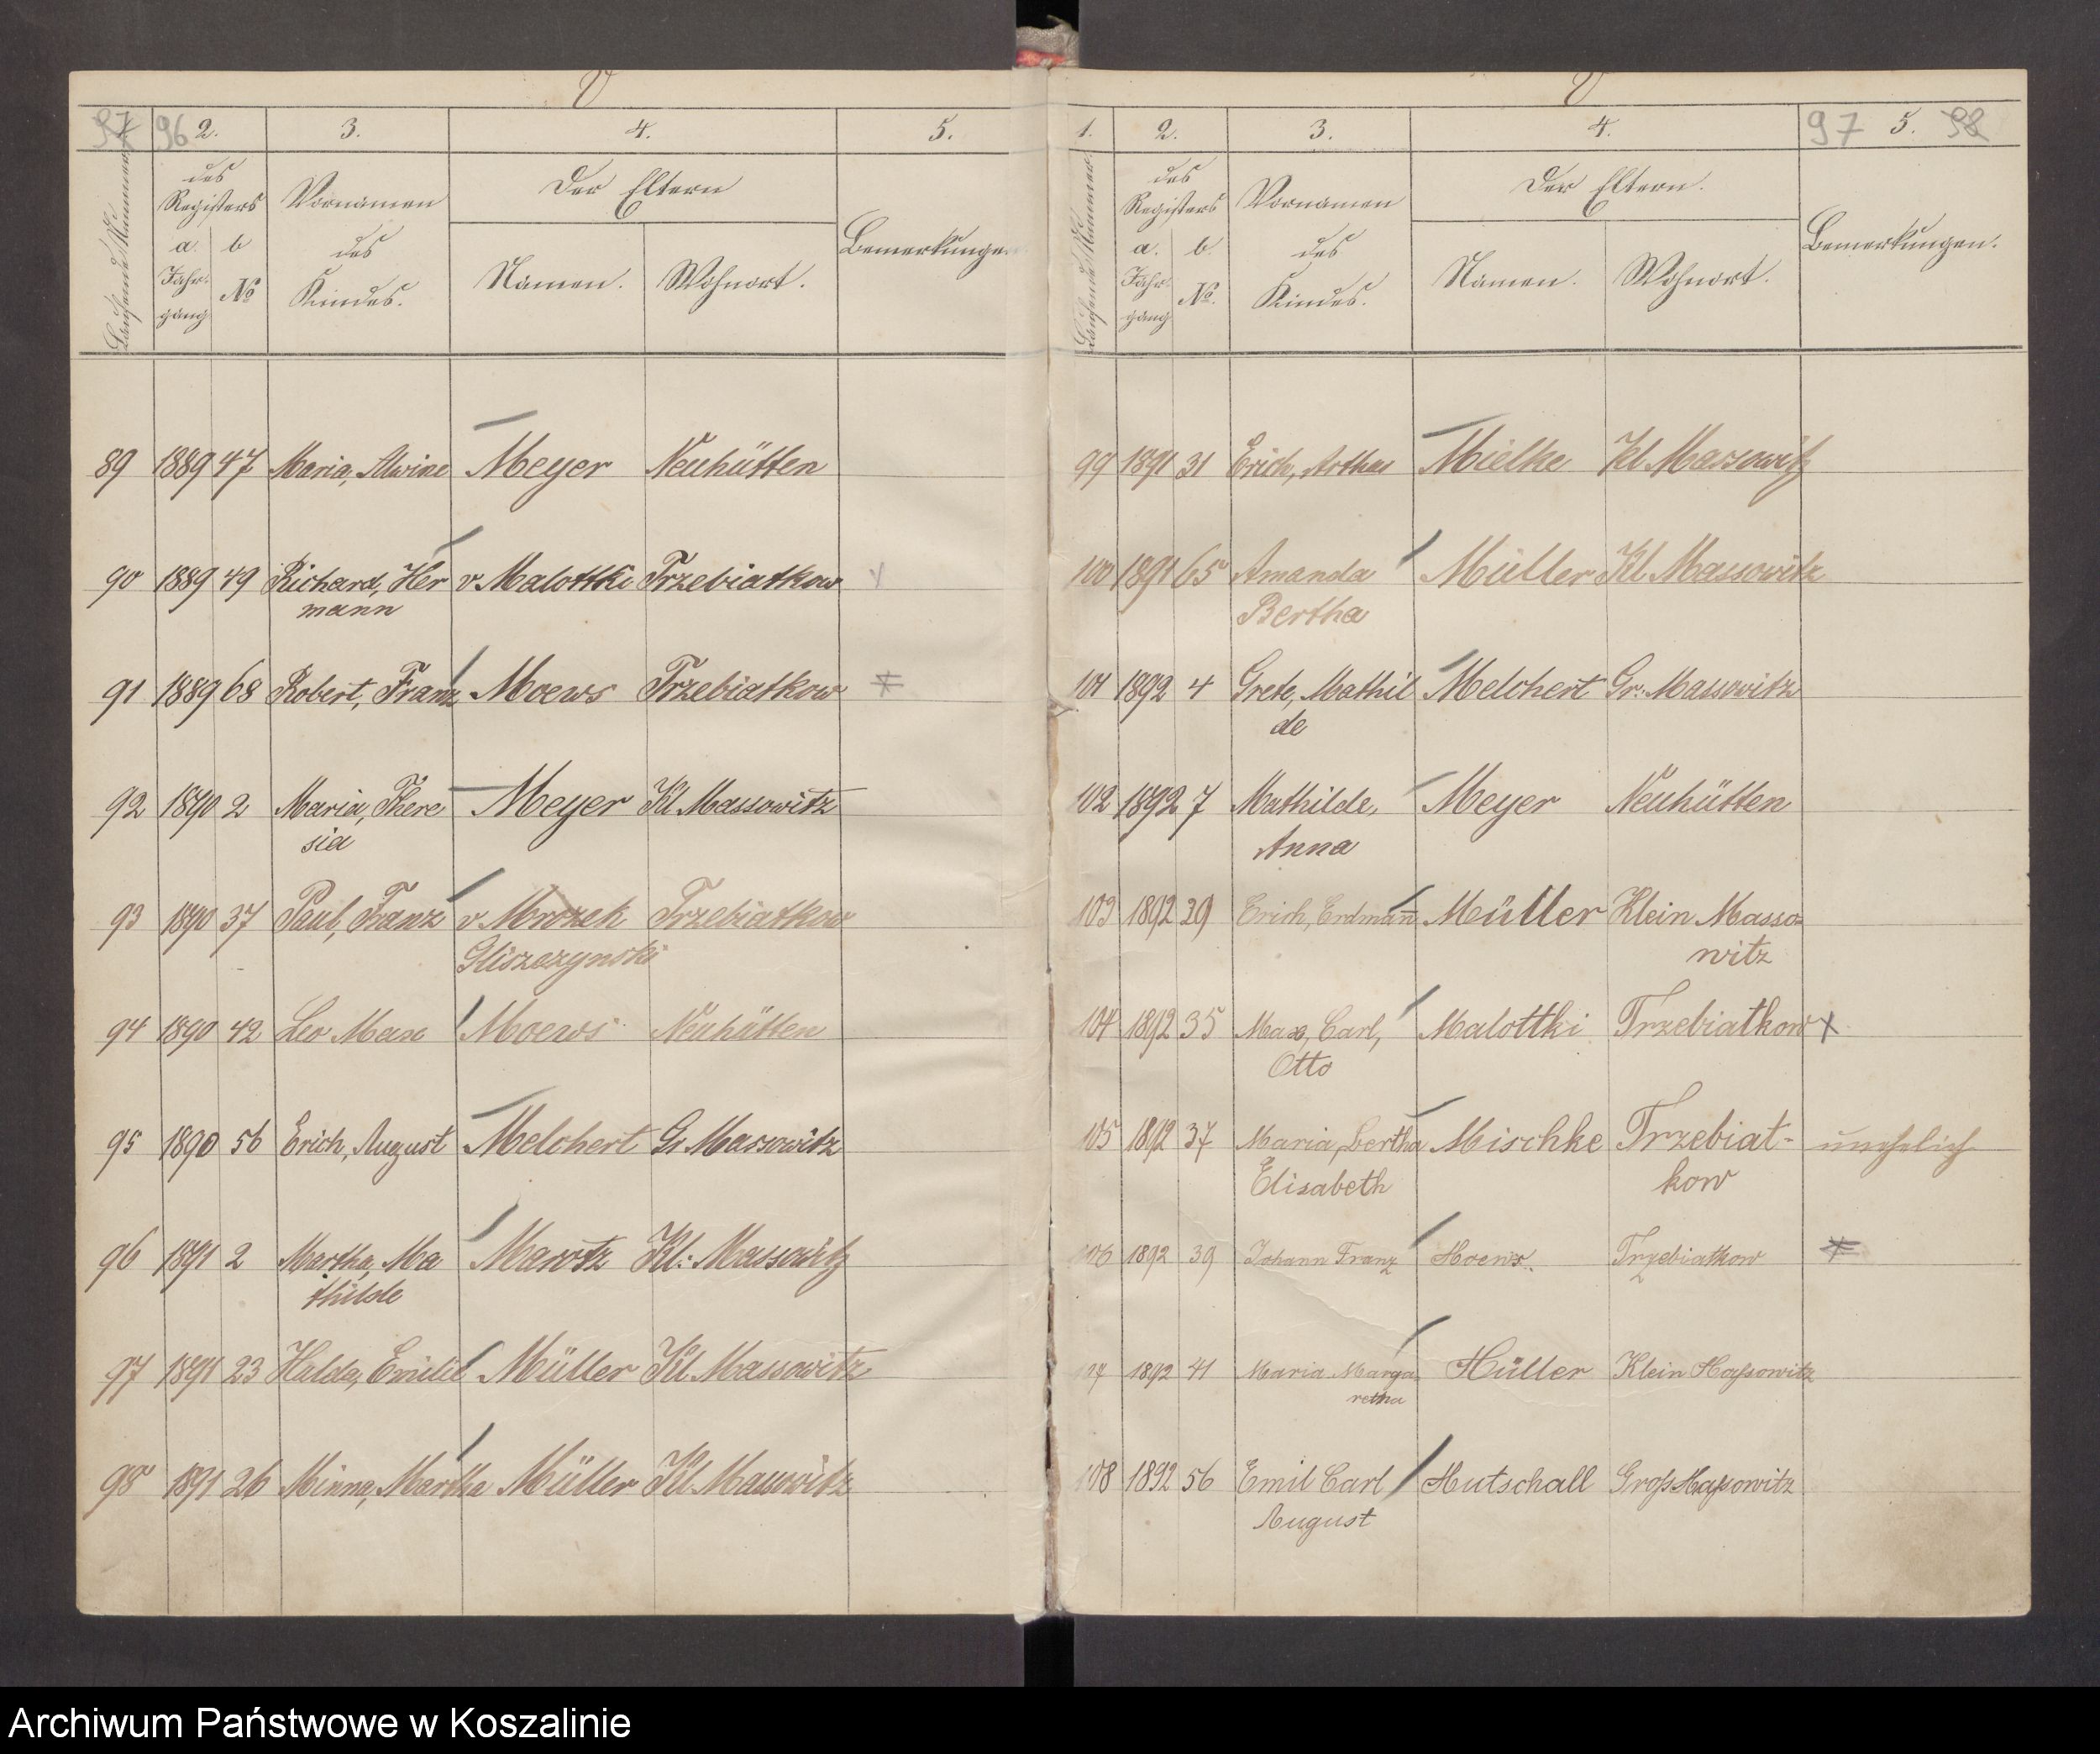 97 96 2. 3. 4. 5.
Laufende Nummer
des
Registers
a. b
Jahr-
gang
No
Vornamen
des
Kindes.
Der Eltern
Namen. Wohnort.
Bemerkungen
89 1889 47 Maria, Alwine Meyer Neuhütten
90 1889 49 Richard, Her v. Malottki Trzebiatkow
mann
91 1889 68 Robert, Franz Moews Trzebiatkow
92 1890 2 Maria, There Meyer Kl Massowitz
sia
93 1890 37 Paul, Franz v Mrozek Trzebiatkow
Gliszczynski
94 1890 42 Leo Max Moews Neuhütten
95 1890 56 Erich, August Melchert Gr Massowitz
96 1891 2 Martha, Ma Marotz Kl: Massowitz
thilde
97 1891 23 Hulda, Emilie Müller Kl. Massowitz
98 1891 26 Minna, Martha Müller Kl. Massowitz
1. 2. 3. 4. 97 5. 98
Laufende Nummer
des
Registers
a. b.
Jahr-
gang
No.
Vornamen
des
Kindes.
Der Eltern.
Namen. Wohnort.
Bemerkungen.
99 1891 31 Erich, Arthur Mielke Kl Massowitz
100 1891 65 Amanda Müller Kl Massowitz
Bertha
101 1892 4 Grete, Mathil Melchert Gr: Massowitz
de
102 1892 7 Mathilde, Meyer Neuhütten
Anna
103 1892 29 Erich, Erdmañ Müller Klein Masso=
witz
104 1892 35 Max, Carl, Malottki Trzebiatkow x
Otto
105 1892 37 Maria, Bertha Mischke Trzebiat- unehelich
Elisabeth kow
106 1892 39 Johann Franz Moews. Trzebiatkow
107 1892 41 Maria Marga= Müller Klein Maßowitz
retha
108 1892 56 Emil Carl Mutschall Groß Maßowitz
August
Archiwum Państwowe w Koszalinie